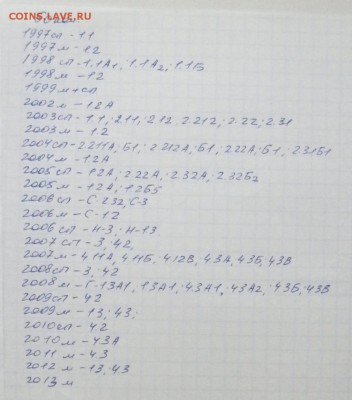 COINS.LAVE.RU
1997сп - 1.1
1997м - 1.2
1998 сп - 1.1А1, 1.1А2; 1.1Б
1998м - 1.2
1999м+сп
2002м - 1.2А
2003сп - 1.1; 2.11; 2.12; 2.212; 2.22; 2.31
2003м - 1.2
2004сп - 2.211А; Б1; 2.212А; Б1, 2.22А; Б1; 2.31Б1
2004м - 1.2А
2005сп - 1.2А; 2.22А; 2.32А; 2.32Б2
2005м - 1.2А; 1.2Б5
2006сп - С-2.32; С-3
2006м - С-1.2
2006 сп - Н-3; Н-1.3
2007 сп - 3; 4.2;
2007м - 4.11А, 4.11Б; 4.12В; 4.3А; 4.3Б; 4.3В
2008сп - 3; 4.2
2008м - Г-1.3А1, 1.3А1; 4.3А1; 4.3А2; 4.3Б; 4.3В
2009сп - 4.2
2009м - 1.3; 4.3;
2010сп - 4.2
2010м - 4.3А
2011м - 4.3
2012м - 1.3; 4.3
2013м